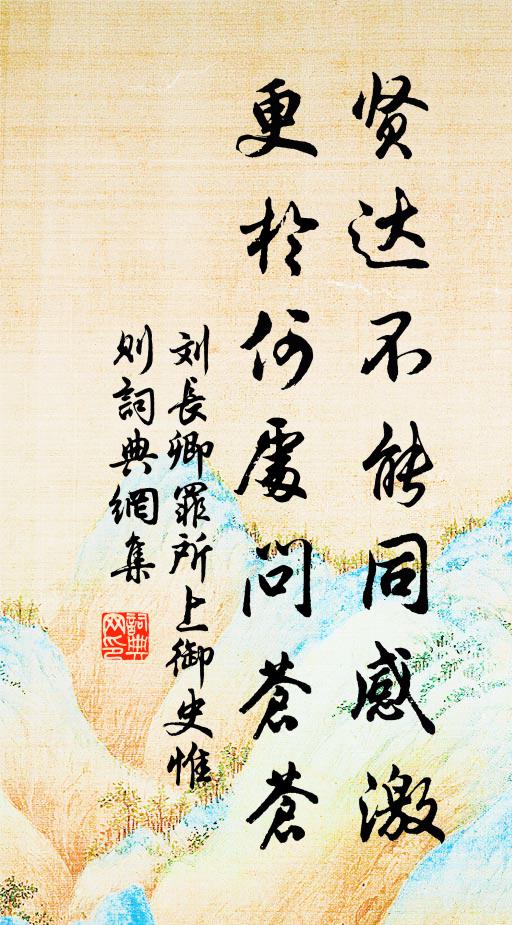 贤达不能同感激
更於何處問蒼蒼
刘長卿罪所上御史惟
则詞典網集
詞典网印